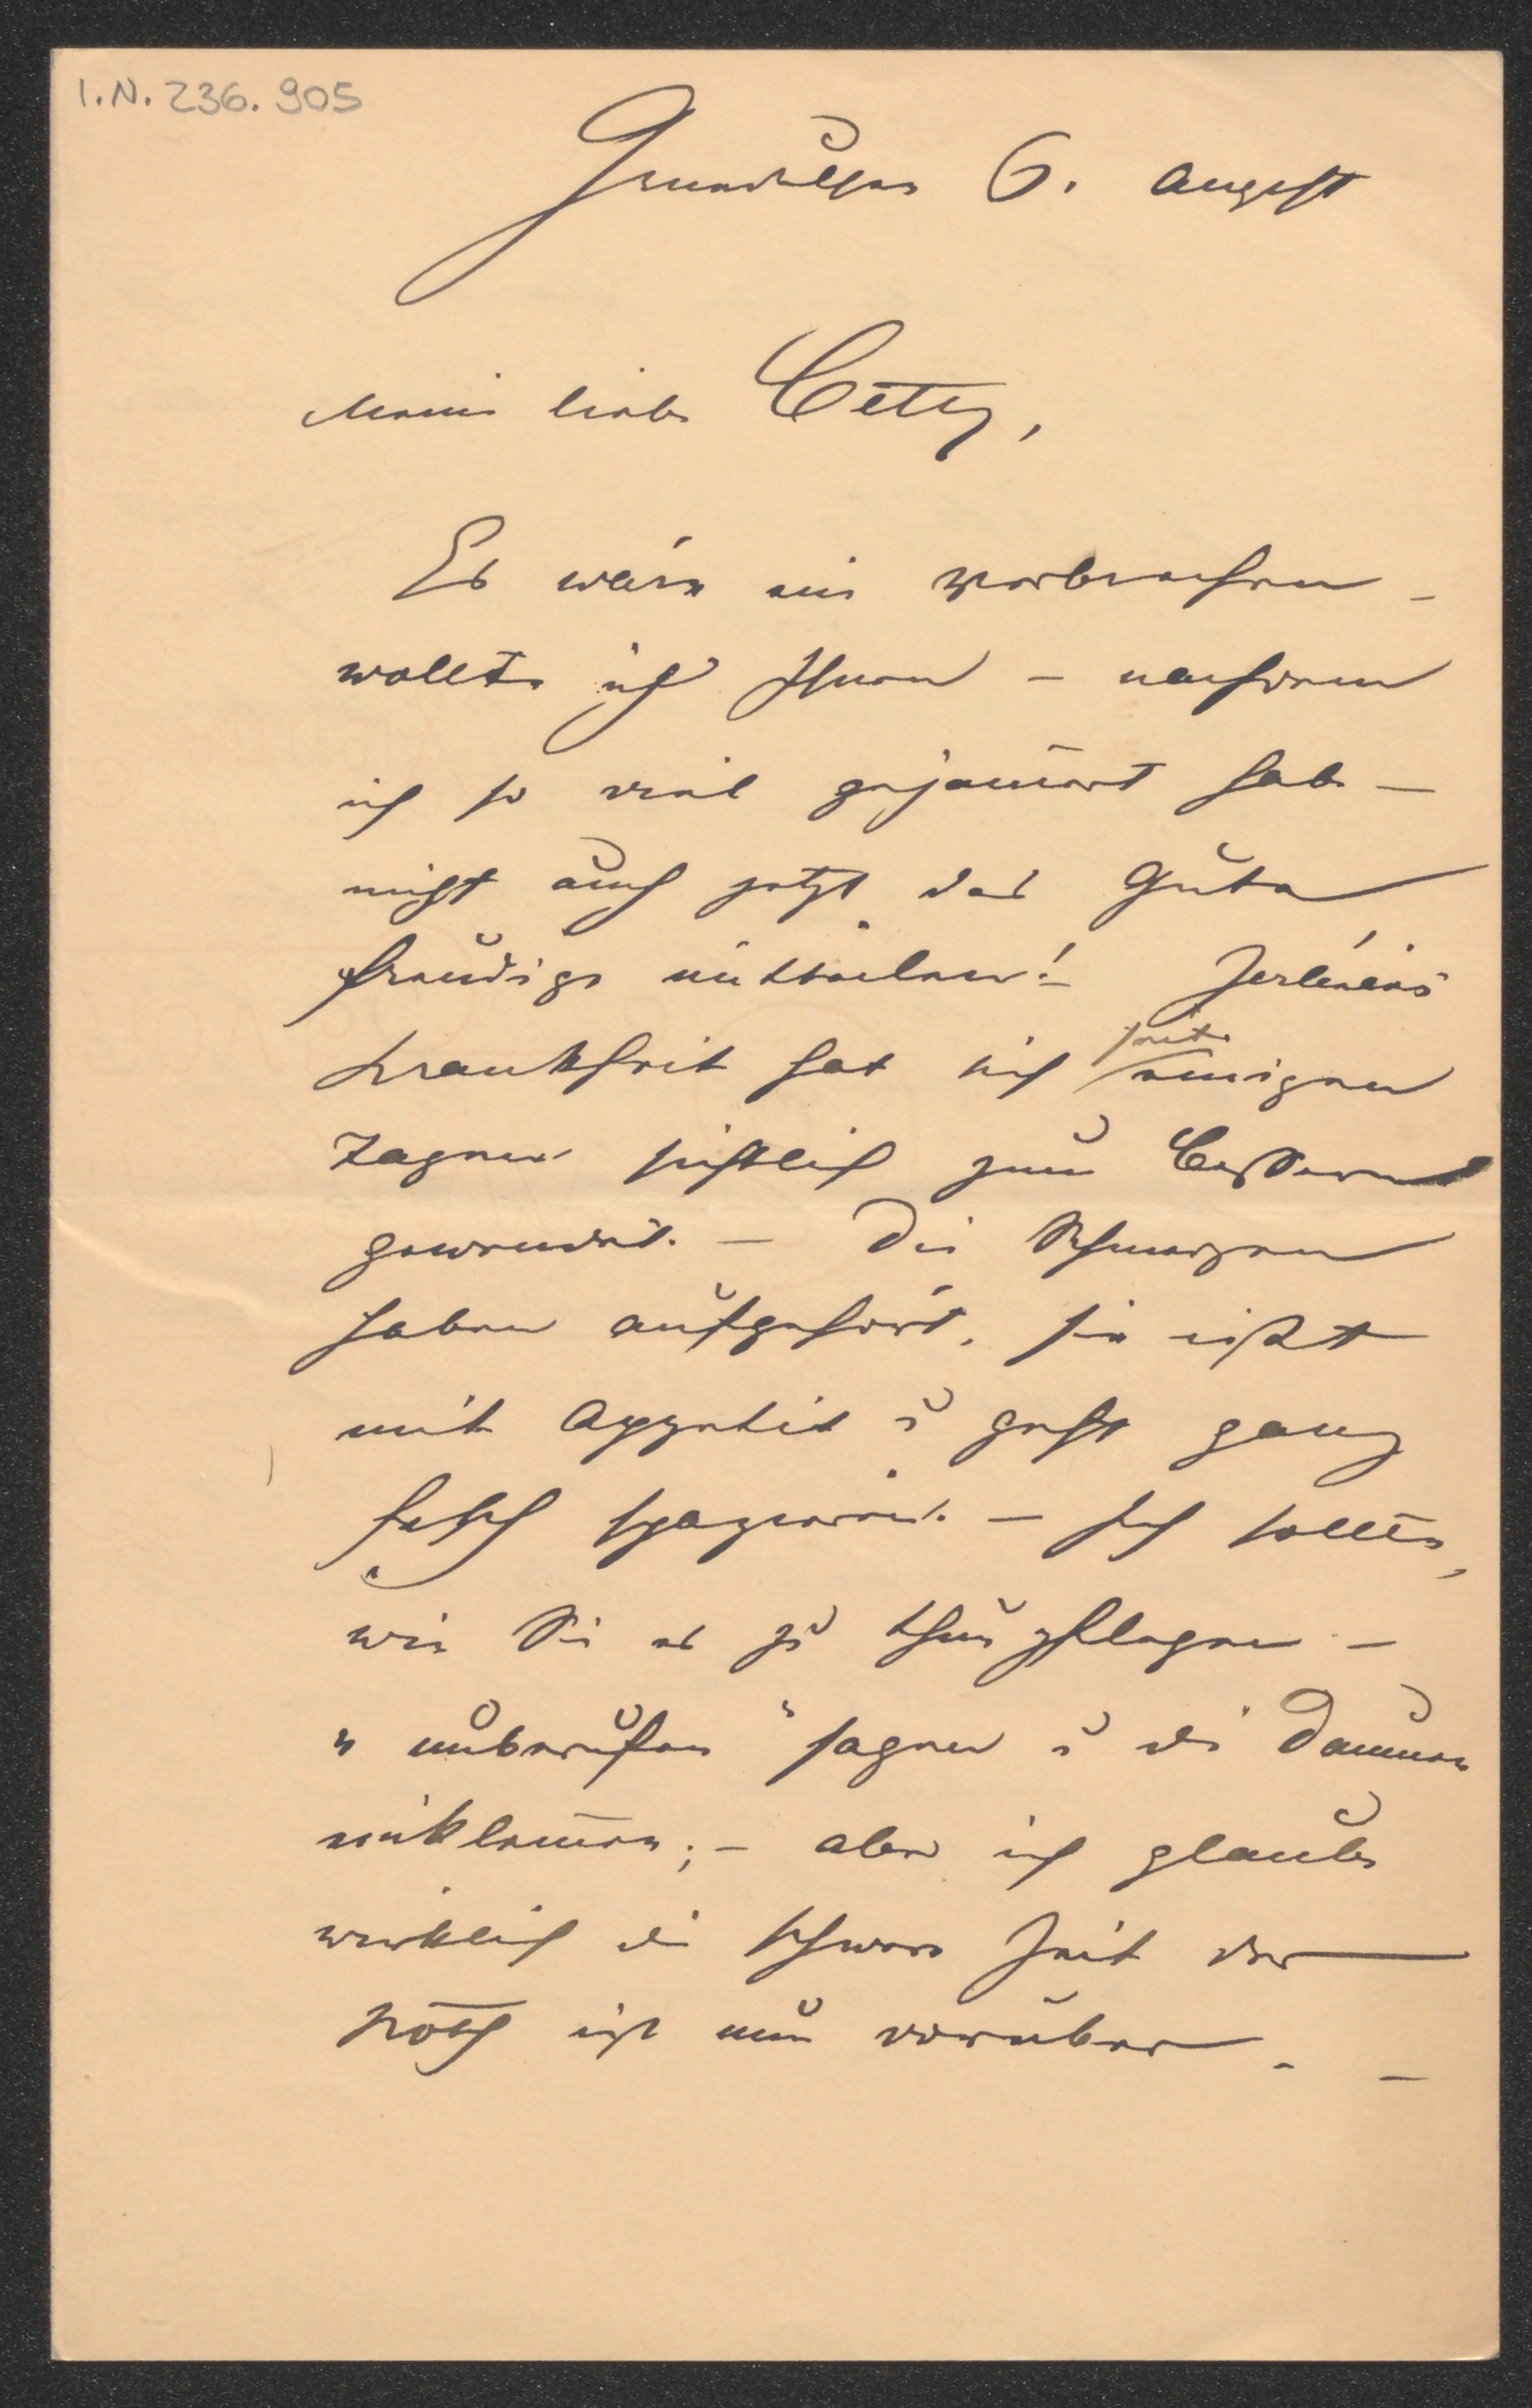 I.N. 236.905
Grundlsee 6. August
Meine liebe Betty,
Es wäre ein Verbrechen –
wollte ich Ihnen – nachdem
ich so viel gejam̄ert habe –
nicht auch jetzt das Gute
freudigst mittheilen! –
Krankheit hat sich seit einigen
Tagen sichtlich zum Bessern
gewendet. – Die Schmerzen
haben aufgehört, sie ißt
mit Appetit u geht ganz
fesch spazieren. – Ich sollte,
wie Sie es zu thun pflegen –
„unberufen“ sagen u die Daumen
einklem̄en; – aber ich glaube
wirklich die schwere Zeit der
Noth ist nun vorüber. –